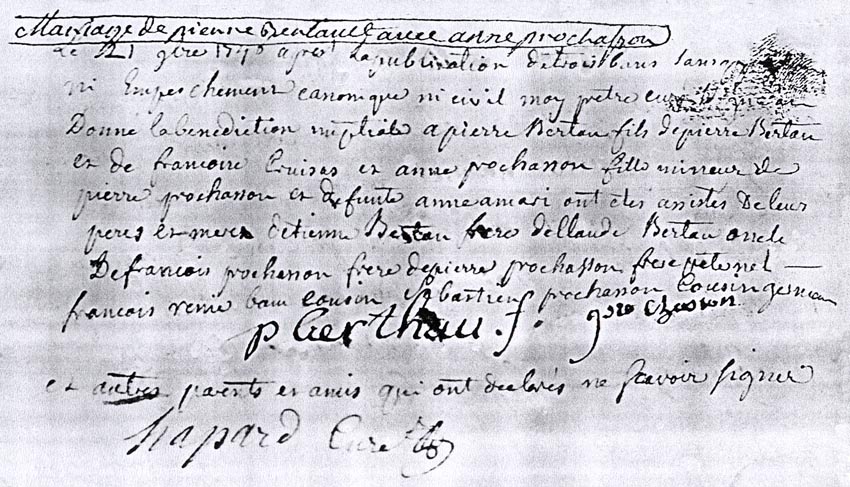 Mariage de pierre Bertault avec anne prochasson
Le 21 9bre apres la publication de trois bans sans
ni Empeschement canonique ni civil moy prêtre curé
Donné la benediction nuptiale a pierre Bertau fils de pierre Bertau
et de francoise Croisas et anne prochasson fille mineur de
pierre prochasson et defunte anne amari ont étés assistés De leur
peres et meres d'etienne Bertau frere de Claude Bertau oncle
De francois prochasson frere de pierre prochasson frere
francois cousin Sebastien prochasson cousin germain
p berthau f.
et autres parents et amis qui ont declarés ne scavoir signer
Chapard Curé